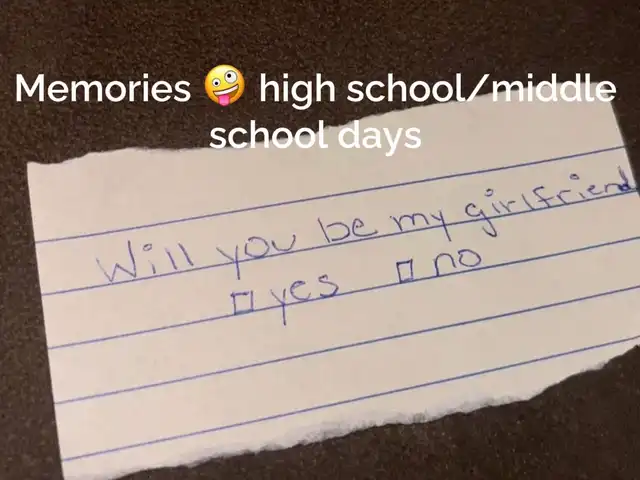 Memories 🤪 high school/middle
school days
Will you be my girlfriend
☐ yes ☐ no